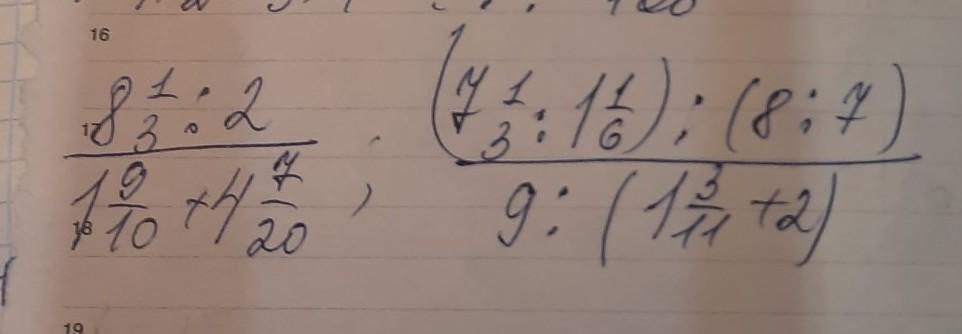 16
8 1/3 : 2
17
1 9/10 + 4 7/20 ;
18
(7 1/3 : 1 1/6) : (8 : 7)
9 : (1 3/11 + 2)
19